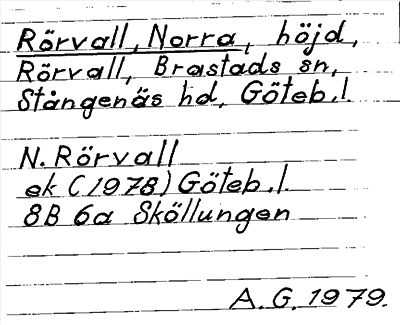 Rörvall, Norra, höjd,
Rörvall, Brastads sn,
Stångenäs hd, Göteb.l.
N. Rörvall
ek (1978) Göteb.l.
8B 6a Sköllungen
A. G. 1979.